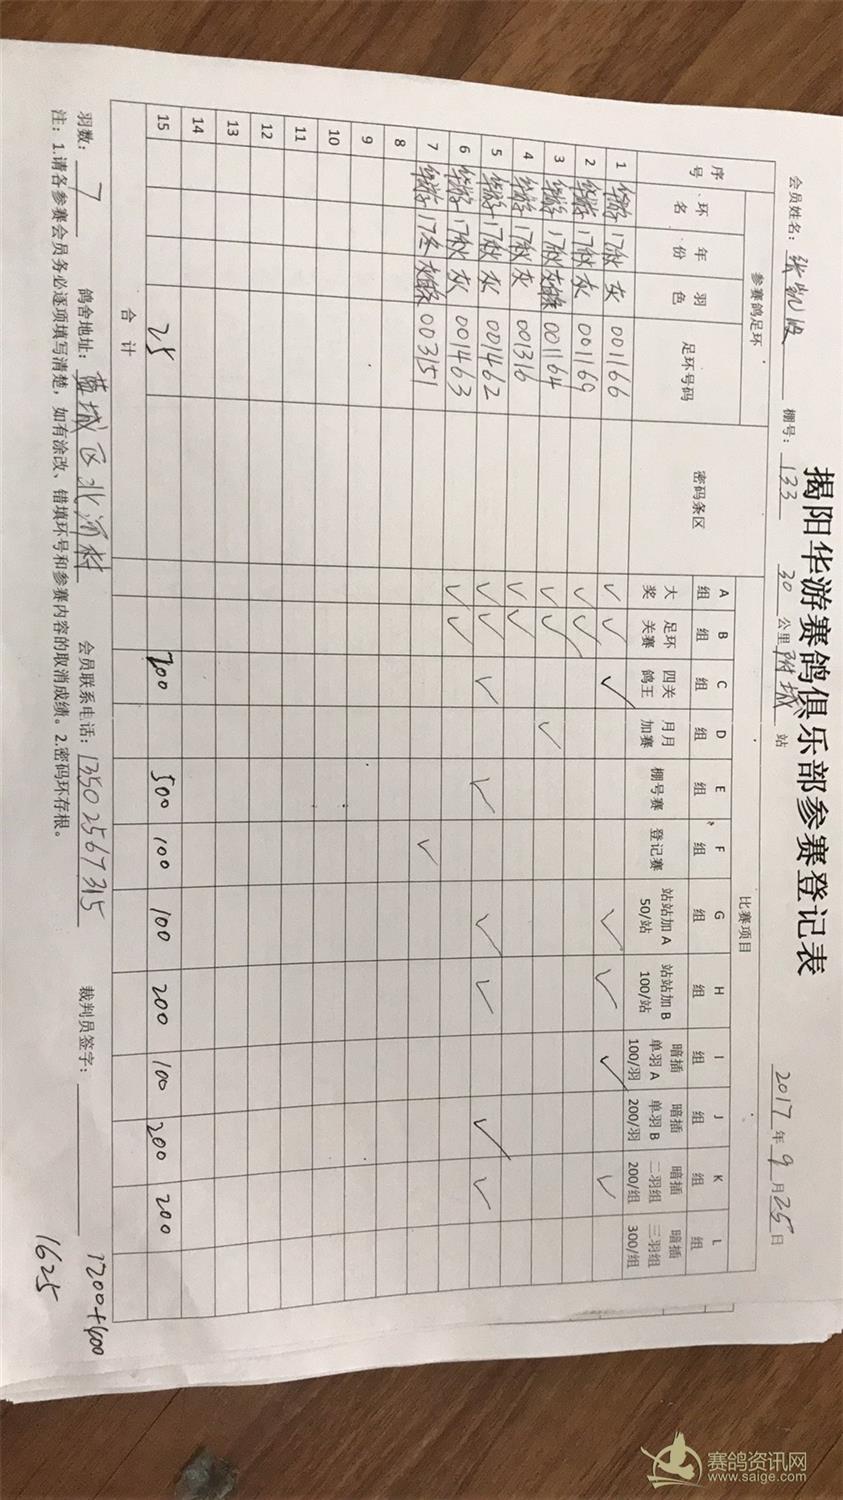 揭阳华游赛鸽俱乐部参赛登记表
会员姓名：张凯波 棚号：133 30 公里 附城 站 2017 年 9 月 25 日
序号 参赛鸽足环 密码条区 比赛项目
环名 年份 羽色 足环号码 A组 B组 C组 D组 E组 F组 G组 H组 I组 J组 K组 L组
大奖 足环关赛 四关鸽王 月月加赛 棚号赛 登记赛 站站加A 50/站 站站加B 100/站 暗插单羽A 100/羽 暗插单羽B 200/羽 暗插二羽组 200/组 暗插三羽组 300/组
1 华游 17秋 灰 001166 ✓ ✓ ✓ ✓ ✓ ✓ ✓
2 华游 17秋 灰 001169 ✓ ✓
3 华游 17秋 001164 ✓ ✓ ✓
4 华游 17秋 灰 001316 ✓ ✓
5 华游 17秋 灰 001462 ✓ ✓ ✓ ✓ ✓ ✓ ✓ ✓
6 华游 17秋 灰 001463 ✓ ✓
7 华游 17冬 003151 ✓
8
9
10
11
12
13
14
15 25 200 500 100 100 200 100 200 200
合计
羽数：7 鸽舍地址：蓝城区北河村 会员联系电话：13502567315 裁判员签字： 1200+400
注：1.请各参赛会员务必逐项填写清楚，如有涂改、错填环号和参赛内容的取消成绩。2.密码环存根。 1625
赛鸽资讯网
www.saige.com